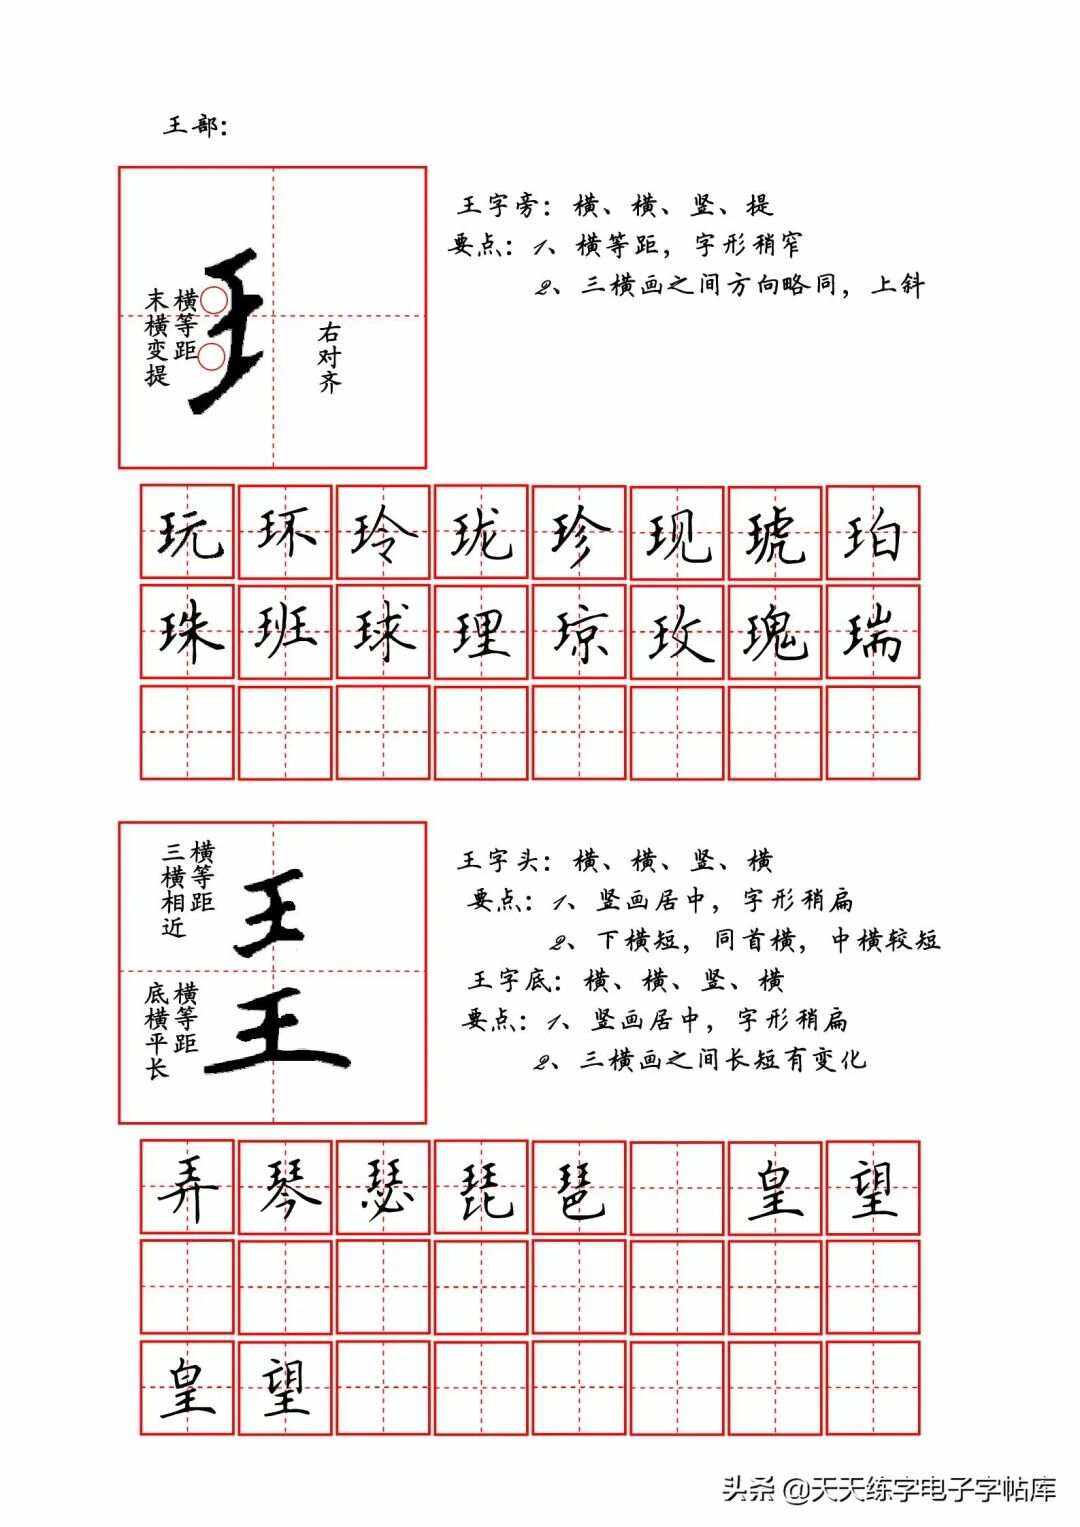 王部：
王
横等距
末横变提
右对齐
王字旁：横、横、竖、提
要点：1、横等距，字形稍窄
2、三横画之间方向略同，上斜
玩环玲珑珍现琥珀
珠班球理琼玫瑰瑞
横等距
三横相近
王
横等距
底横平长
王
王字头：横、横、竖、横
要点：1、竖画居中，字形稍扁
2、下横短，同首横，中横较短
王字底：横、横、竖、横
要点：1、竖画居中，字形稍扁
2、三横画之间长短有变化
弄琴瑟琵琶 皇望
皇望
头条 @天天练字电子字帖库